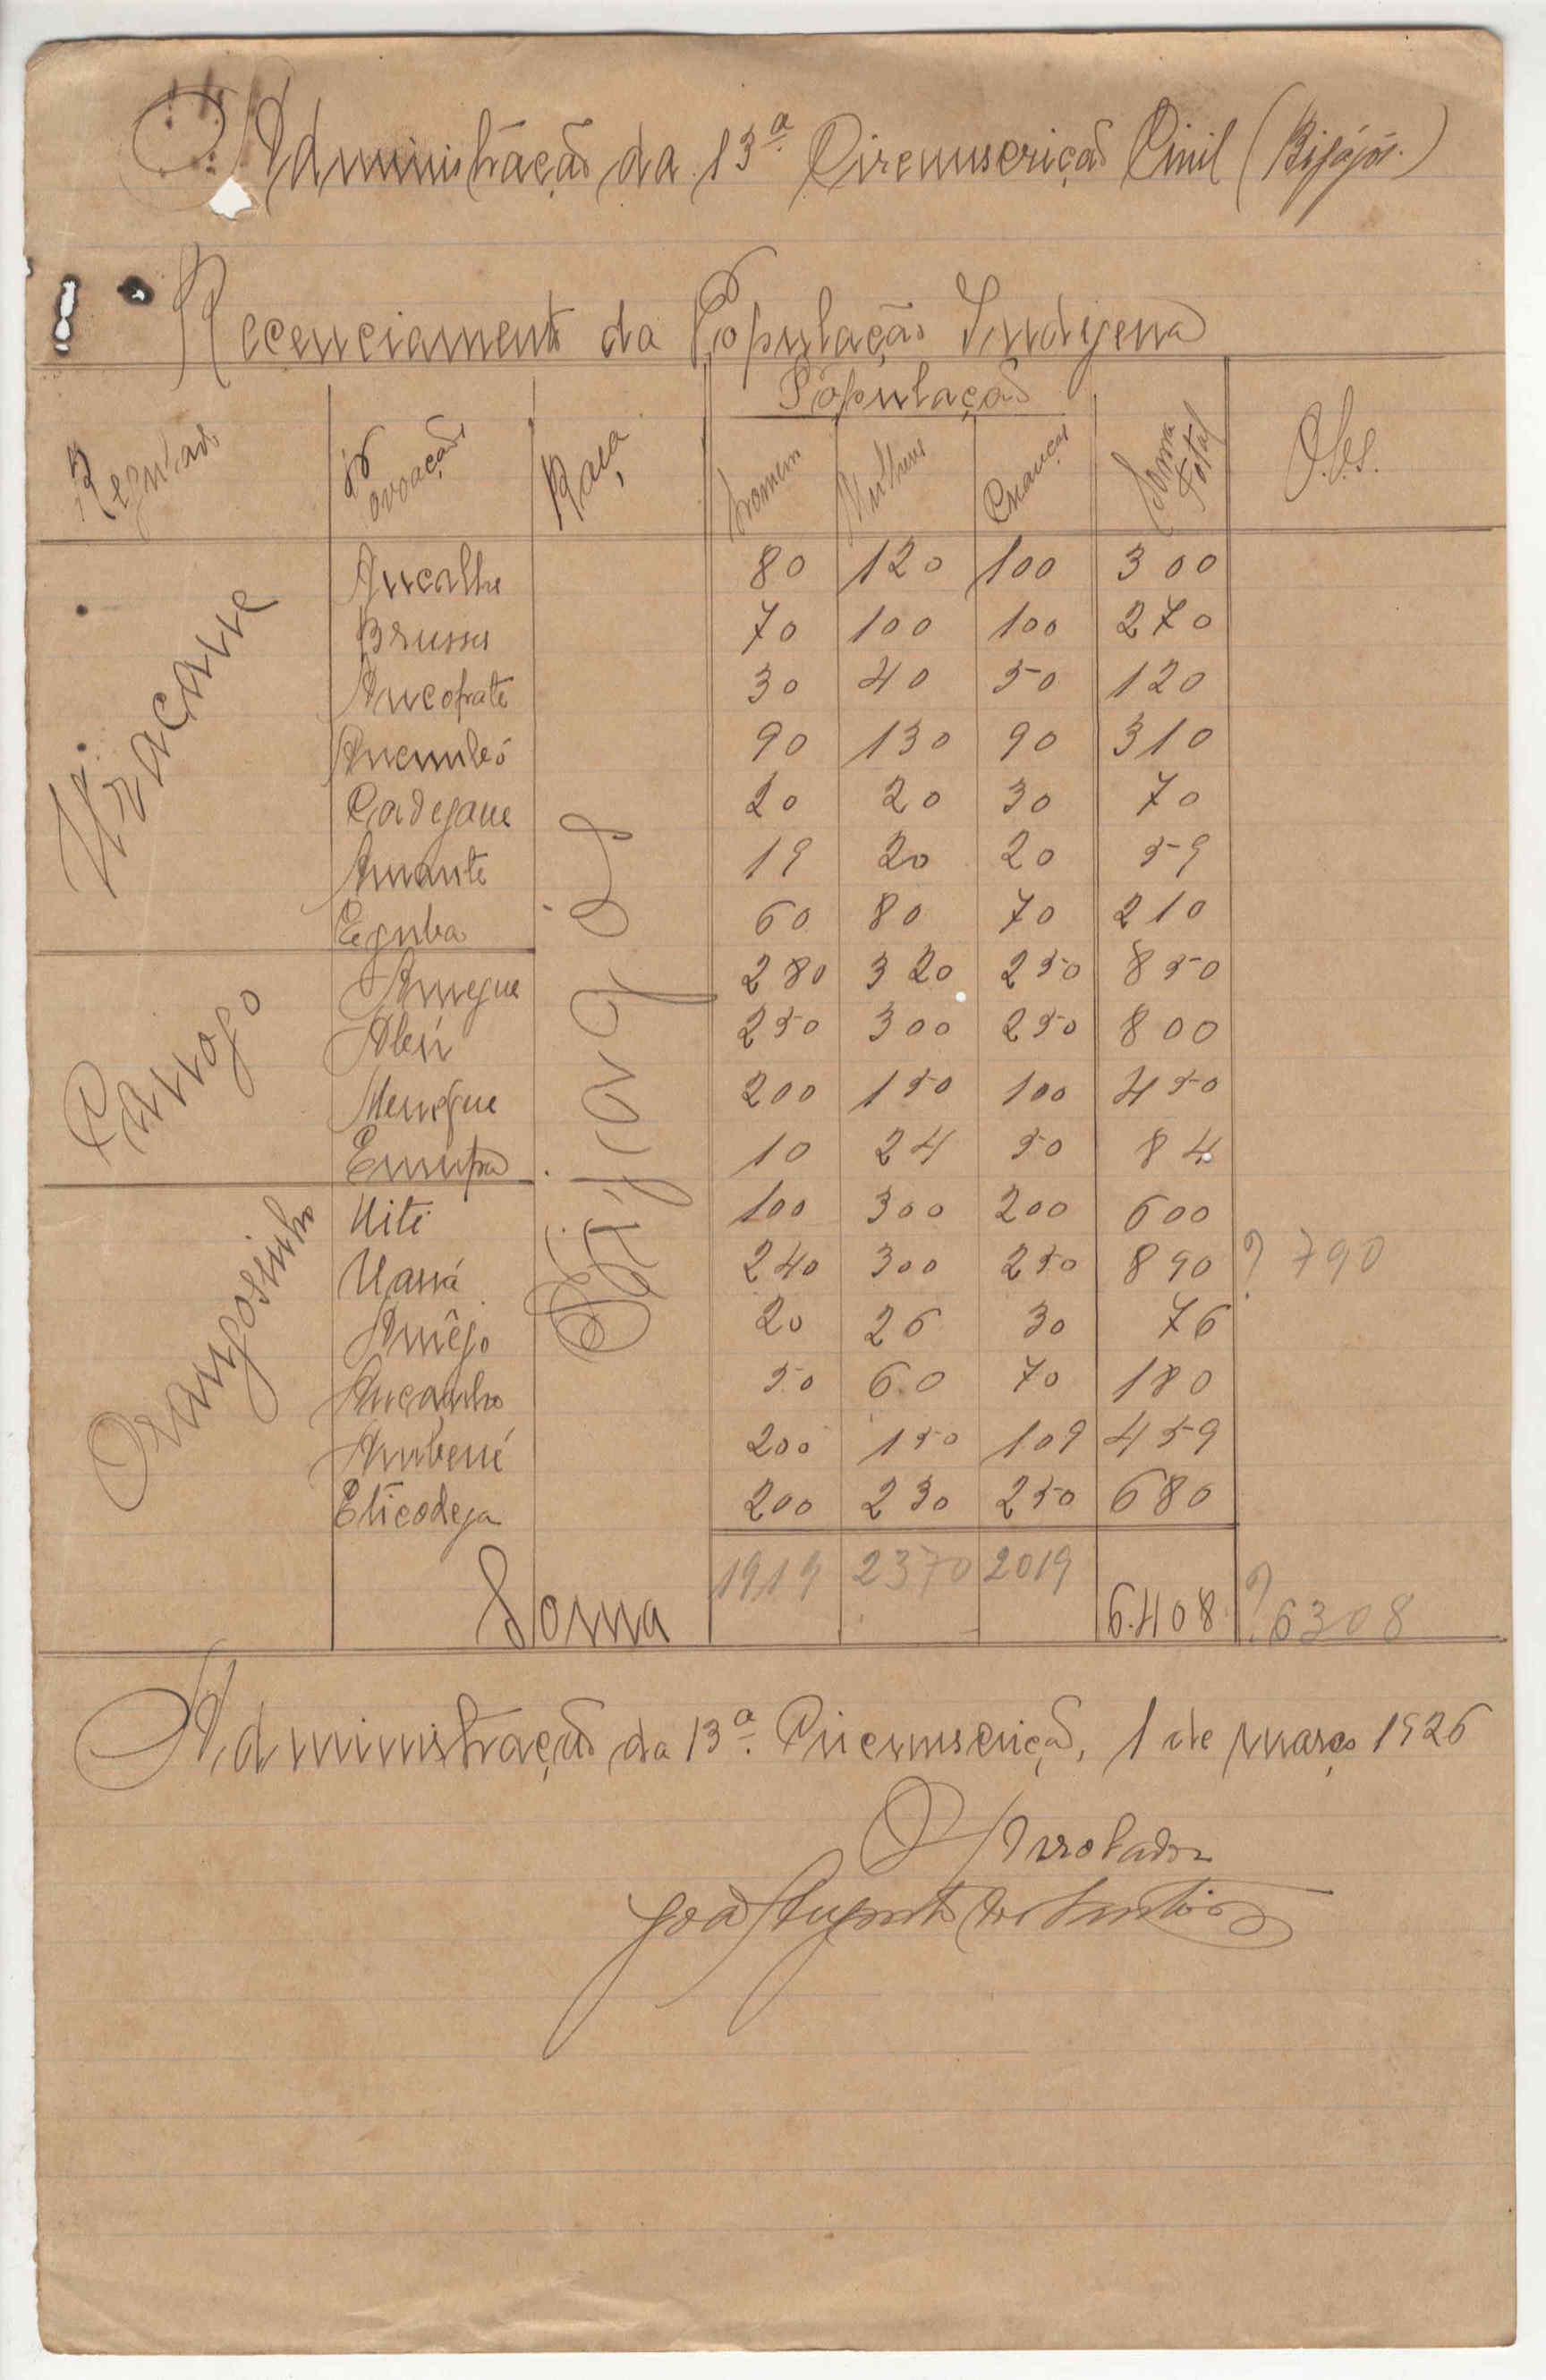 Administração da 13ª Circunscrição Civil (Bijagós.)
Recenciamento da População Indigena
Regulado Povoação Raça População Soma Total Obs.
Homens Mulheres Crianças
Uracane
Ancalha 80 120 100 300
Brusse 70 100 100 270
Ancopate 30 40 50 120
Ancumbó 90 130 90 310
Cadegane 20 20 30 70
Amante 19 20 20 59
Eguba 60 80 70 210
Canogo
Amegue 280 320 250 850
Abú 250 300 250 800
Menegue 200 150 100 450
10 24 50 84
Orangosinho
Uite 100 300 200 600
Uaná 240 300 250 890 ? 790
Amêjo 20 26 30 76
Ancanho 50 60 70 180
Anbené 200 150 109 459
Eticodega 200 230 250 680
Bijagoz
Soma 1919 2370 2019 6.408 ? 6308
Administração da 13ª Circunscrição, 1 de março 1926
O Arrolador
João Augusto dos Santos